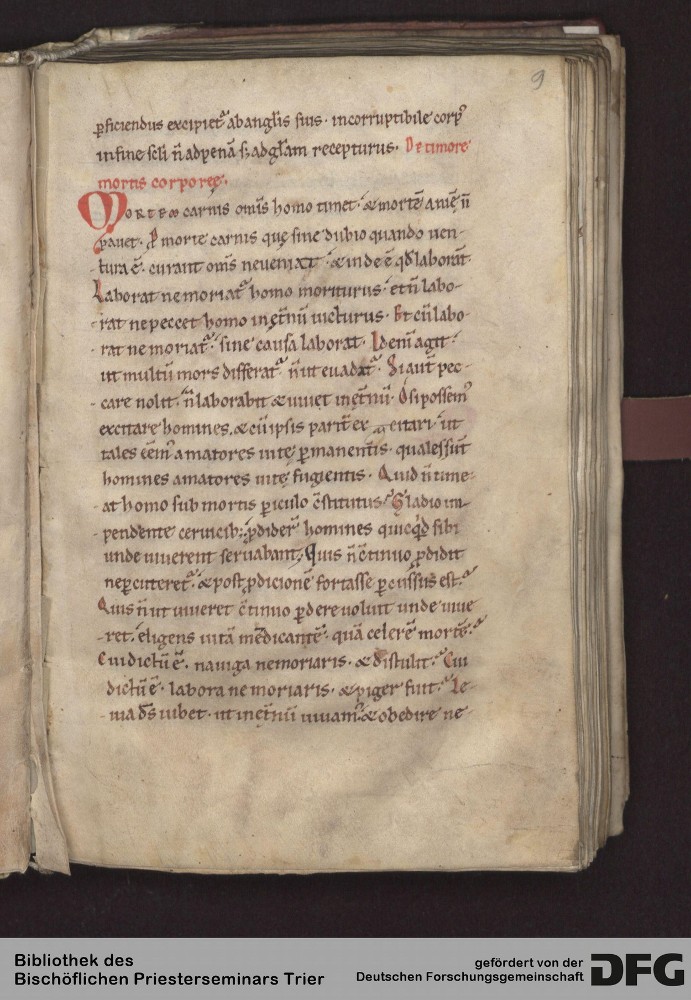 9
ꝑficiendus excipiet᷑ ab anglis suis · incorruptibile corpꝰ
in fine scl̄i n̄ ad penā sꝫ ad gl̄am recepturus · De timore
mortis corporeę ·
MORTEM carnis om̄s homo timet · & mortē animę n̄
pauet · P morte carnis quę sine dubio quando uen-
tura ē · curant om̄s ne ueniat · & inde ē qd̄ laborant ·
Laborat ne moriat᷑ homo moriturus · et n̄ labo-
rat ne peccet homo in et̄nū uicturus · Et cū labo-
rat ne moriat᷑ · sine causa laborat · Id enī agit ·
ut multū mors differat᷑ · n̄ ut euadat᷑ · Si aut̄ pec-
care nolit · n̄ laborabit & uiuet in et̄nū · O si possemꝰ
excitare homines, & cū ipsis parit̄ excitari · ut
tales eēmꝰ amatores uitę ꝑmanentis · quales sunt
homines amatores uitę fugientis · Quid n̄ time-
at homo sub mortis ꝑiculo c̄stitutus · Gladio im-
pendente ceruicibꝫ · ꝓdider̄ homines quicqd̄ sibi
unde uiuerent seruabant · Quis n̄ c̄tinuo ꝓdidit
ne ꝑcuteret᷑ · & post ꝓdicionē fortasse ꝑcussus est ·
Quis n̄ ut uiueret c̄tinuo ꝑdere uoluit unde uiue-
ret · eligens uitā mendicantē · quā celerē mortē ·
Cui dictū ē · nauiga ne moriaris · & distulit · Cui
dictū ē · labora ne moriaris · & piger fuit · Le-
uia ds̄ iubet · ut in et̄nū uiuamꝰ & obedire ne-
Bibliothek des
Bischöflichen Priesterseminars Trier
gefördert von der
Deutschen Forschungsgemeinschaft
DFG